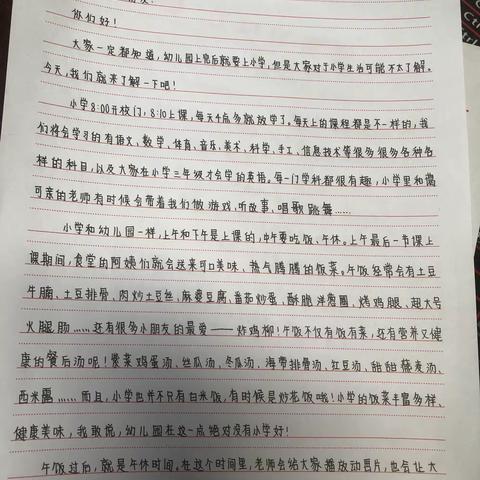 你们好！
大家一定都知道，幼儿园上完后就要上小学，但是大家对于小学生活可能不太了解。
今天，我们就来了解一下吧！
小学8:00开校门，8:10上课，每天4点多就放学了。每天上的课程都是不一样的，我
们将会学习的有语文、数学、体育、音乐、美术、科学、手工、信息技术等很多很多各种各
样的科目，以及大家在小学三年级才会学的英语。每一门学科都很有趣，小学里和蔼
可亲的老师有时候会带着我们做游戏、听故事、唱歌跳舞……
小学和幼儿园一样，上午和下午是上课的，中午要吃饭、午休。上午最后一节课上
课期间，食堂的阿姨们就会送来可口美味、热气腾腾的饭菜。午饭经常会有土豆
牛腩、土豆排骨、肉炒土豆丝、麻婆豆腐、番茄炒蛋、酥脆洋葱圈、烤鸡腿、超大号
火腿肠……还有很多小朋友的最爱——炸鸡柳！午饭不仅有饭有菜，还有营养又健
康的餐后汤呢！紫菜鸡蛋汤、丝瓜汤、冬瓜汤、海带排骨汤、红豆汤、甜甜荞麦汤、
西米露……而且，小学也并不只有白米饭，有时候是炒花饭哦！小学的饭菜丰富多样、
健康美味，我敢说，幼儿园在这一点绝对没有小学好！
午饭过后，就是午休时间。在这个时间里，老师会给大家播放动画片，也会让大